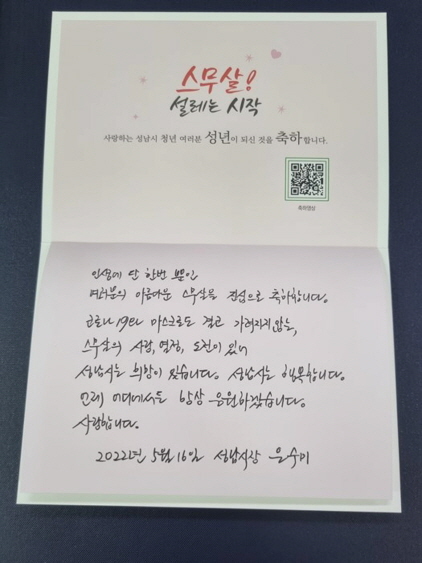 스무살!
설레는 시작
사랑하는 성남시 청년 여러분 성년이 되신 것을 축하합니다.
축하영상
인생에 단 한번 뿐인
여러분의 아름다운 스무살을 진심으로 축하합니다.
코로나19와 마스크로도 결코 가려지지 않는,
스무살의 사랑, 열정, 도전이 있어
성남시는 희망이 있습니다. 성남시는 행복합니다.
언제 어디에서든 항상 응원하겠습니다.
사랑합니다.
2022년 5월 16일 성남시장 은수미